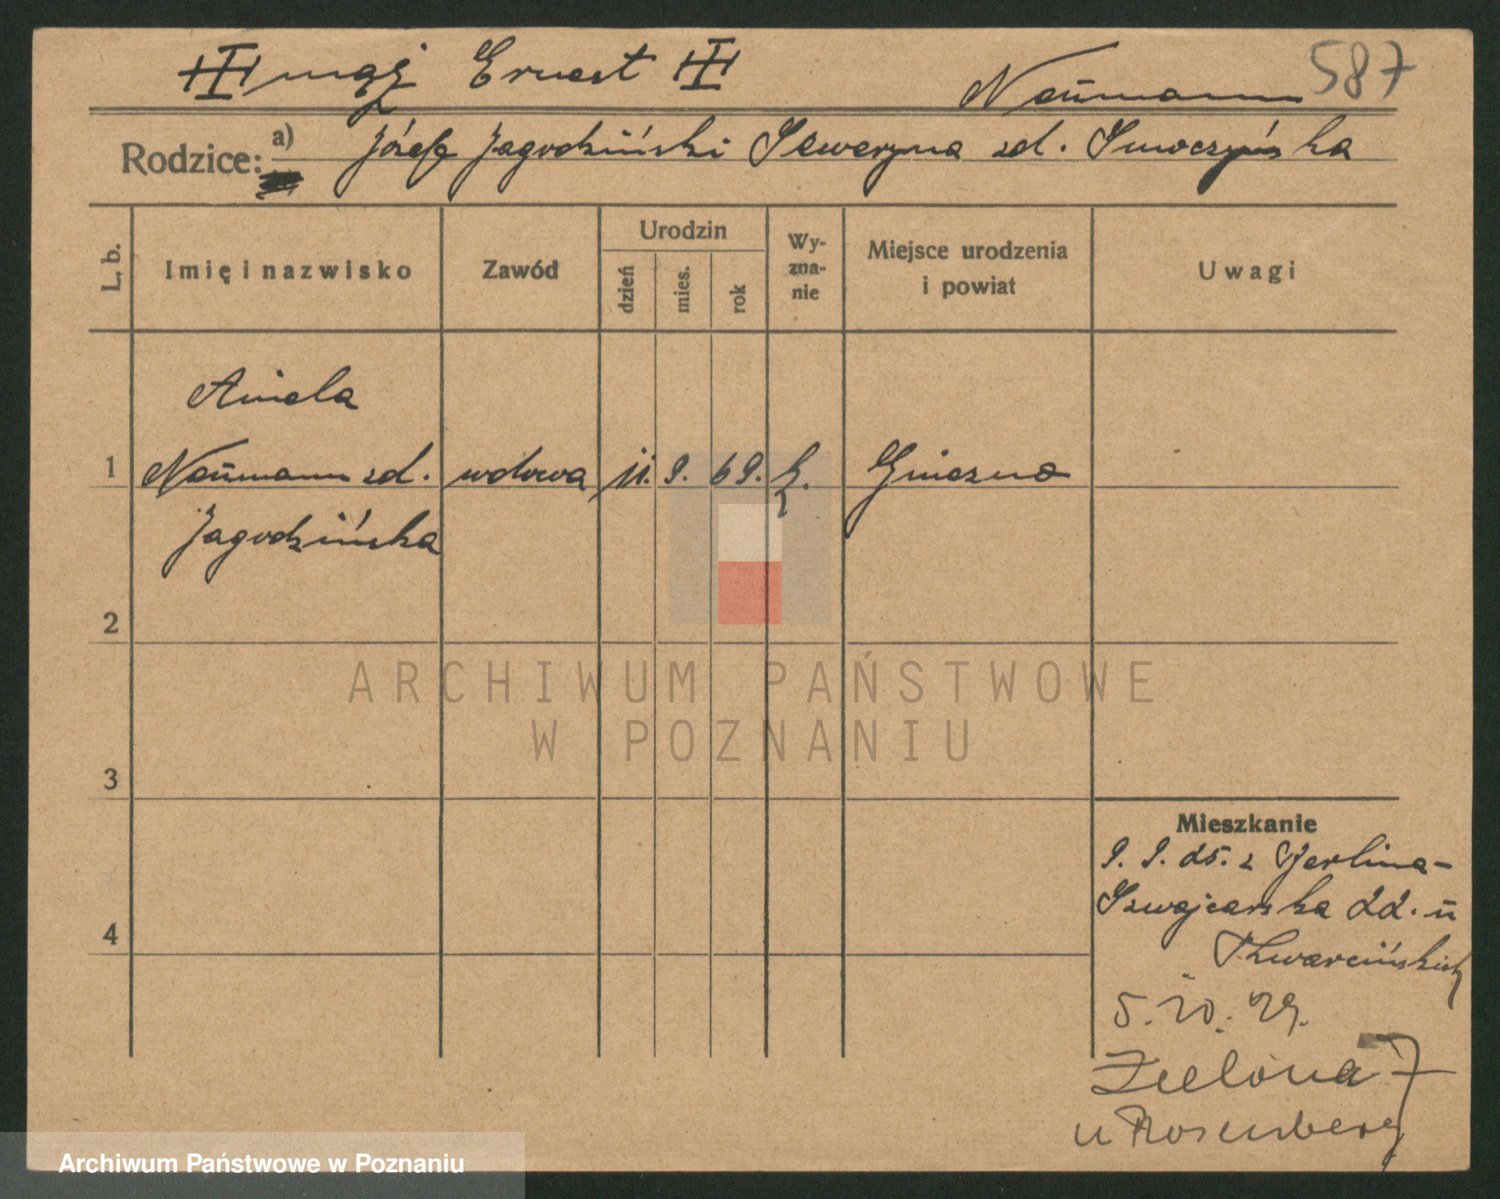 mąż Ernest
Neumann
587
Rodzice: a) Józef Jagodziński Seweryna zd. Smoczyńska
L. b.
Imię i nazwisko
Zawód
Urodzin
dzień
mies.
rok
Wy-
zna-
nie
Miejsce urodzenia
i powiat
Uwagi
Aniela
1 Neumann zd. wdowa 11. 9. 69. k. Gniezno
Jagodzińska
2
3
4
ARCHIWUM PAŃSTWOWE
W POZNANIU
Mieszkanie
9. 9. 25. z Berlina-
Szwajcarska 22. u
5. 10. 29.
Zielona 7
u Rosenberg
Archiwum Państwowe w Poznaniu